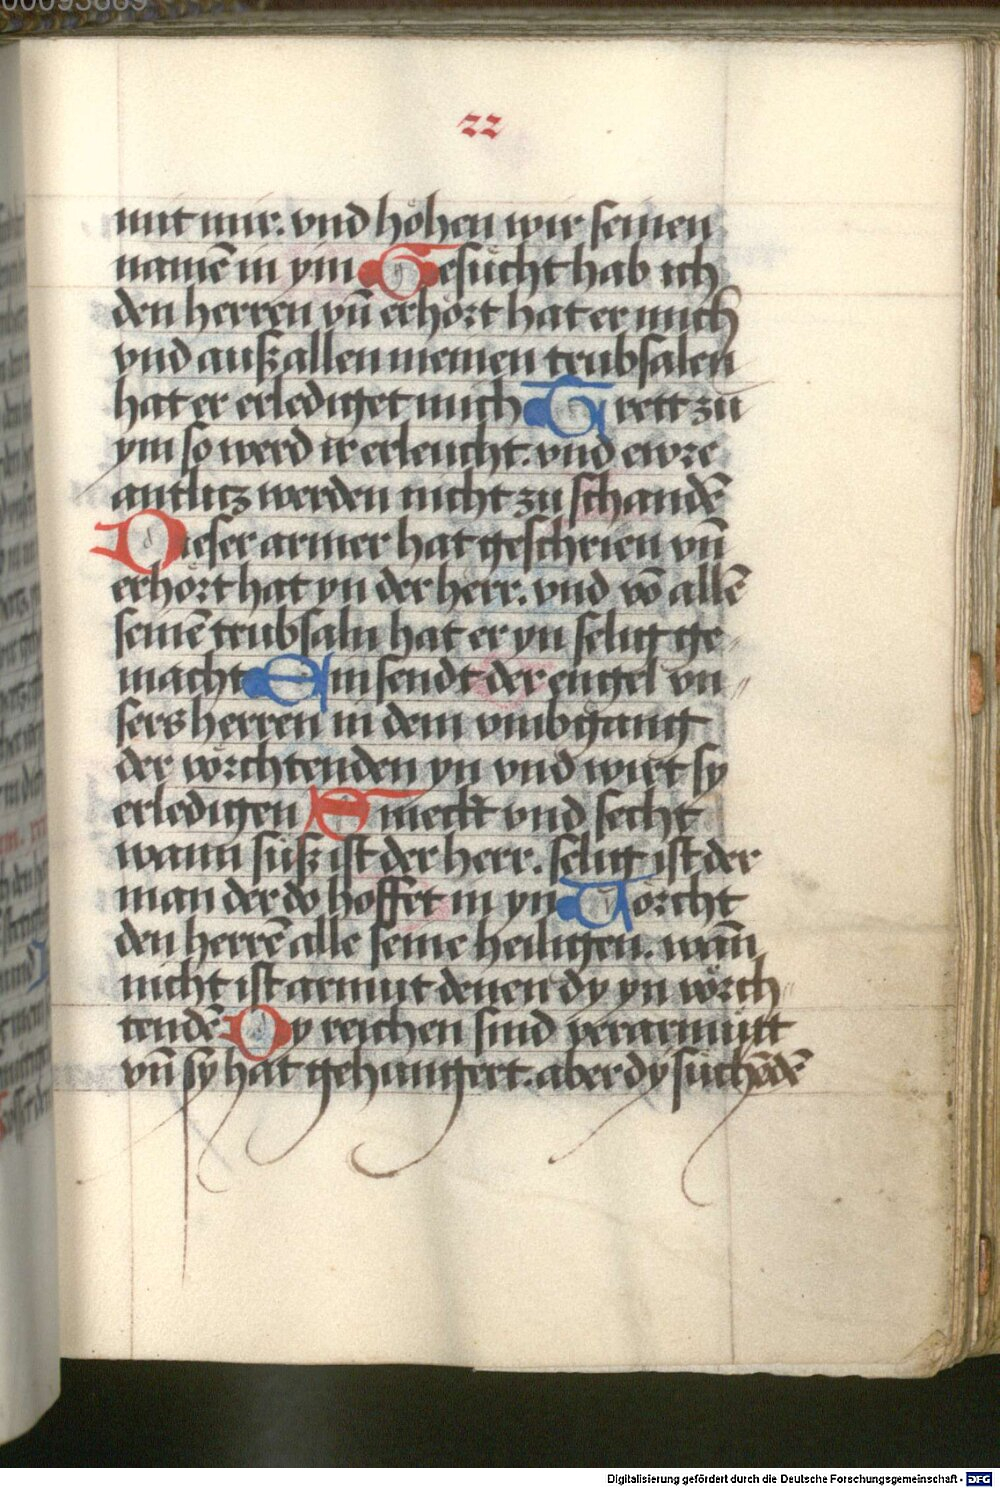 22
mit mir. vnd höhen wir seinen
namē in ym Gesücht hab ich
den herren vn̄ erhört hat er mich
vnd auß allen meinen trubsalen
hat er erlediget mich Trett zü
ym so werd ir erleucht. vnd ewre
antlitz werden nicht zu schandē
Dieser armer hat geschrien vn̄
erhört hat yn der herr. vnd vō allē
seinē trubsaln hat er yn selig ge„
macht Ein sendt der engel vn„
sers herren in dem vmbgang
der vörchtenden yn vnd wirt sy
erledigen Smeckt vnd secht
wann süß ist der herr. selig ist der
man der do hoffet in yn Vörcht
den herrē alle seine heiligen. wan̄
nicht ist armut denen dy yn vörch„
tendē Dy reichen sind verarmütt
vn̄ sy hat gehungert. aber dy süchēdē
Digitalisierung gefördert durch die Deutsche Forschungsgemeinschaft - DFG